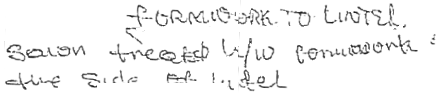 FORMWORK TO LINTEL.
Sawn treated h/w formwork
the side of lintel